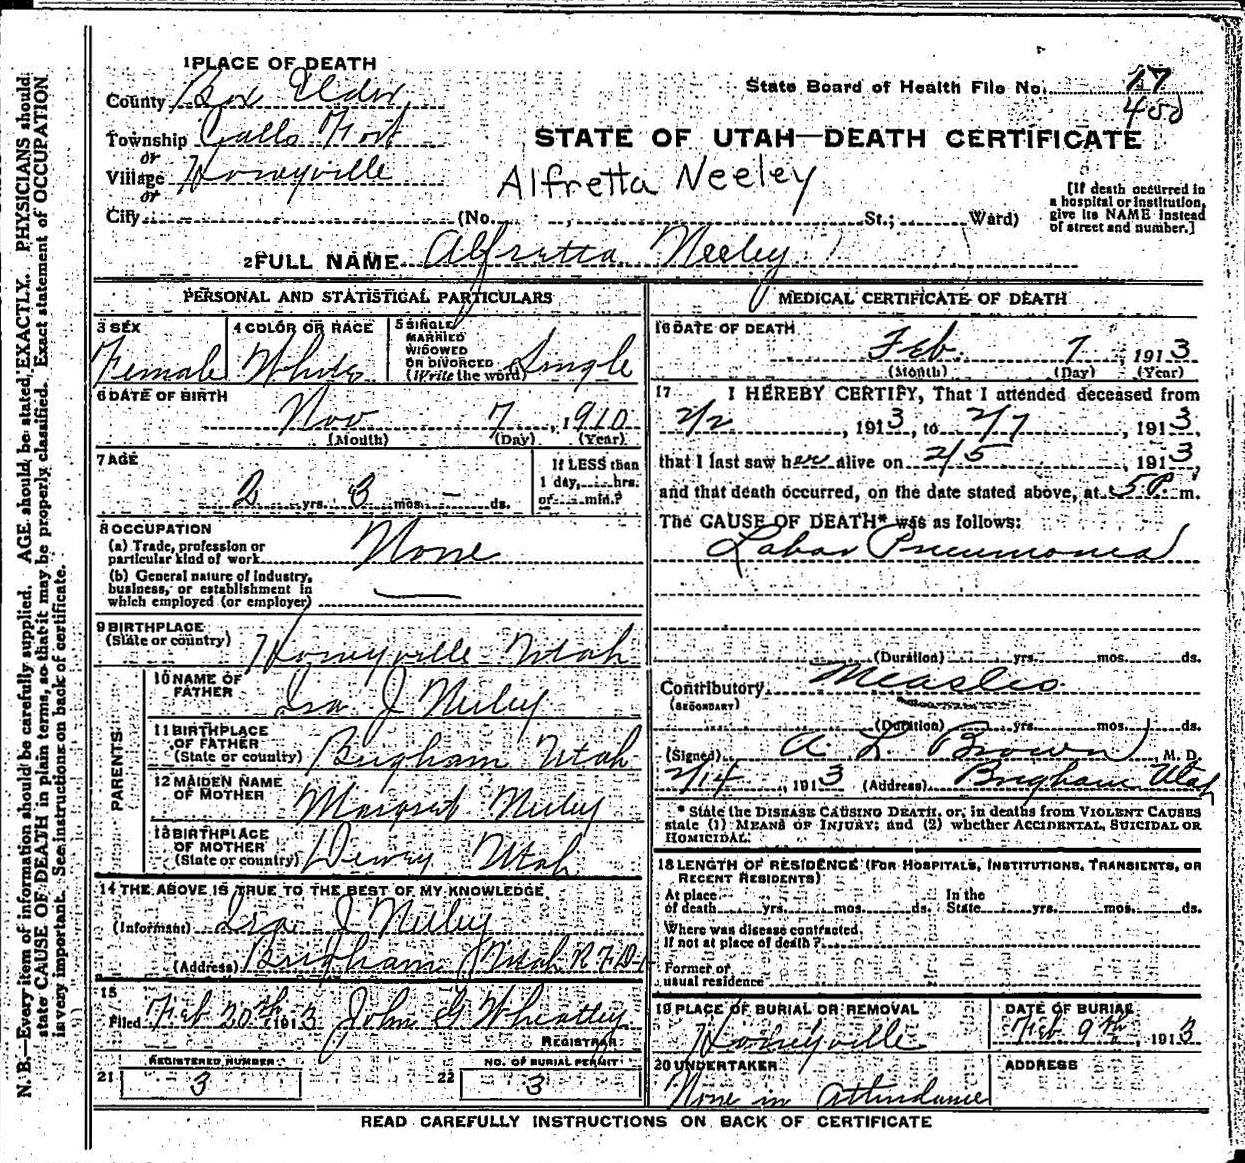 1 PLACE OF DEATH
County Box Elder
State Board of Health File No. 17
450
Township Calls Fort
or
Village Honeyville
or
STATE OF UTAH—DEATH CERTIFICATE
Alfretta Neeley
City (No. , St.; Ward)
[If death occurred in
a hospital or institution,
give its NAME instead
of street and number.]
2 FULL NAME Alfretta Neeley
PERSONAL AND STATISTICAL PARTICULARS
3 SEX
Female
4 COLOR OR RACE
White
5 SINGLE
MARRIED
WIDOWED
OR DIVORCED
(Write the word) Single
6 DATE OF BIRTH
Nov 7, 1910
(Month) (Day) (Year)
7 AGE
2 yrs. 3 mos. — ds.
If LESS than
1 day, hrs.
or min.?
8 OCCUPATION
(a) Trade, profession or
particular kind of work None
(b) General nature of industry,
business, or establishment in
which employed (or employer) —
9 BIRTHPLACE
(State or country) Honeyville Utah
PARENTS
10 NAME OF
FATHER Ira J Neeley
11 BIRTHPLACE
OF FATHER
(State or country) Brigham Utah
12 MAIDEN NAME
OF MOTHER Margret Neeley
13 BIRTHPLACE
OF MOTHER
(State or country) Dewey Utah
14 THE ABOVE IS TRUE TO THE BEST OF MY KNOWLEDGE
(Informant) Ira J Neeley
(Address) Brigham Utah R F D-1
15
Filed Feb 20th, 1913 John G Wheatley
REGISTRAR
REGISTERED NUMBER
21 3
NO. OF BURIAL PERMIT
22 3
MEDICAL CERTIFICATE OF DEATH
16 DATE OF DEATH
Feb. 7, 1913
(Month) (Day) (Year)
17 I HEREBY CERTIFY, That I attended deceased from
2/2, 1913, to 2/7, 1913,
that I last saw her alive on 2/5, 1913,
and that death occurred, on the date stated above, at 5 P. m.
The CAUSE OF DEATH* was as follows:
Lobar Pneumonia
(Duration) yrs. mos. ds.
Contributory Measles
(SECONDARY)
(Duration) yrs. mos. ds.
(Signed) A L Brown M. D.
2/14, 1913 (Address) Brigham Utah
* State the DISEASE CAUSING DEATH, or, in deaths from VIOLENT CAUSES
state (1) MEANS OF INJURY; and (2) whether ACCIDENTAL, SUICIDAL OR
HOMICIDAL.
18 LENGTH OF RESIDENCE (FOR HOSPITALS, INSTITUTIONS, TRANSIENTS, OR
RECENT RESIDENTS)
At place
of death yrs. mos. ds.
In the
State yrs. mos. ds.
Where was disease contracted,
If not at place of death?
Former or
usual residence
19 PLACE OF BURIAL OR REMOVAL
Honeyville
DATE OF BURIAL
Feb 9th, 1913
20 UNDERTAKER
None in attendance
ADDRESS
READ CAREFULLY INSTRUCTIONS ON BACK OF CERTIFICATE
N. B.—Every item of information should be carefully supplied. AGE should be stated EXACTLY. PHYSICIANS should
state CAUSE OF DEATH in plain terms, so that it may be properly classified. Exact statement of OCCUPATION
is very important. See instructions on back of certificate.